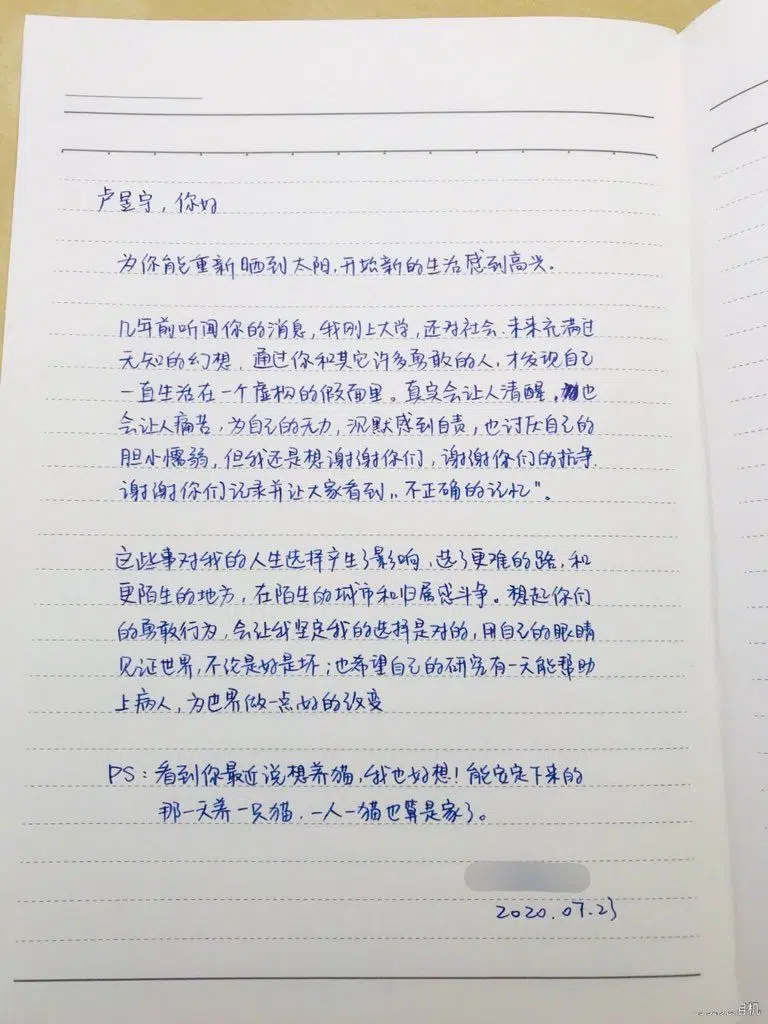 卢昱宁，你好
为你能重新晒到太阳，开始新的生活感到高兴．
几年前听闻你的消息，我刚上大学，还对社会、未来充满过
无知的幻想．通过你和其它许多勇敢的人，才发现自己
一直生活在一个虚构的假面里。真实会让人清醒，也
会让人痛苦，为自己的无力，沉默感到自责，也讨厌自己的
胆小懦弱，但我还是想谢谢你们，谢谢你们的抗争．
谢谢你们记录并让大家看到„不正确的记忆”。
这些事对我的人生选择产生了影响，选了更难的路，和
更陌生的地方，在陌生的城市和归属感斗争。想起你们
的勇敢行为，会让我坚定我的选择是对的，用自己的眼睛
见证世界，不论是好是坏；也希望自己的研究有一天能帮助
上病人，为世界做一点好的改变
PS：看到你最近说想养猫，我也好想！能安定下来的
那一天养一只猫．一人一猫也算是家了。
2020.07.23
相机